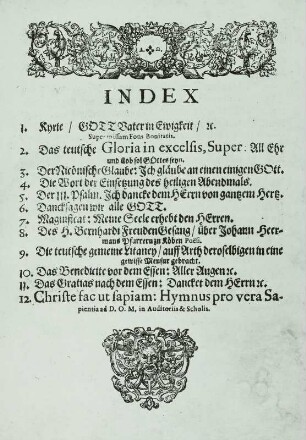 INDEX
1. Kyrie / GOTT Vater in Ewigkeit / ꝛc.
Super missam Fons Bonitatis.
2. Das teutsche Gloria in excelsis, Super. All Ehr
und Lob sol GOttes seyn.
3. Der Nicönische Glaube: Ich gläube an einen einigen Gott.
4. Die Wort der Einsetzung des heiligen Abendmals.
5. Der III. Psalm. Ich dancke dem HErrn von gantzem Hertz.
6. Dancksagen wir alle GOTT.
7. Magnificat: Meine Seele erhebt den HErren.
8. Des H. Bernhardi Freuden Gesang / über Johann Heer-
mans Pfarrern zu Köben Poësi.
9. Die teutsche gemeine Litaney / auff Arth deroselbigen in eine
gewisse Mensur gebracht.
10. Das Benedicite vor dem Essen: Aller Augen ꝛc.
11. Das Gratias nach dem Essen: Dancket dem HErrn ꝛc.
12. Christe fac ut sapiam: Hymnus pro vera Sa-
pientia ad D. O. M. in Auditoriis & Scholis.